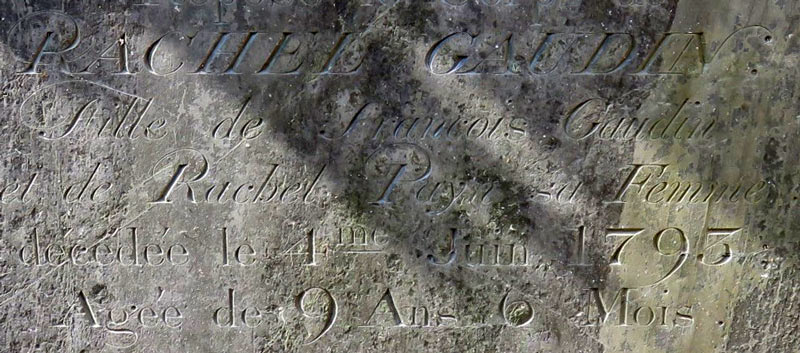 RACHEL GAUDIN
Fille de Francois Gaudin
et de Rachel Payn sa Femme
décédée le 4me Juin 1793.
Agée de 9 Ans 6 Mois.